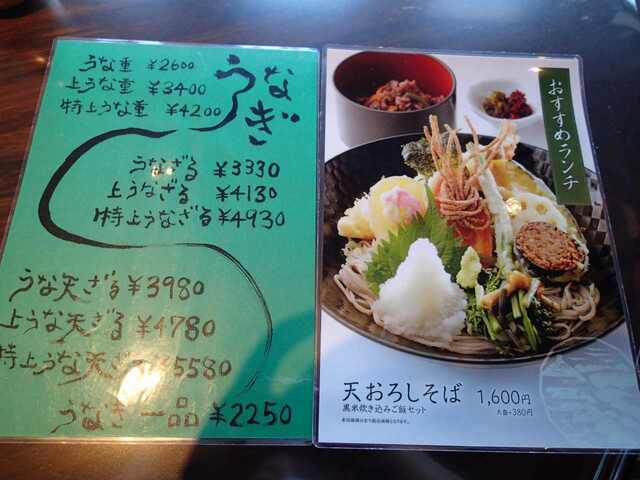 うなぎ
うな重 ¥2600
上うな重 ¥3400
特上うな重 ¥4200
うなざる ¥3330
上うなざる ¥4130
特上うなざる ¥4930
うな天ざる ¥3980
上うな天ざる ¥4780
特上うな天ざる ¥5580
うなぎ一品 ¥2250
おすすめランチ
天おろしそば 1,600円
黒米炊き込みご飯セット
大盛+380円